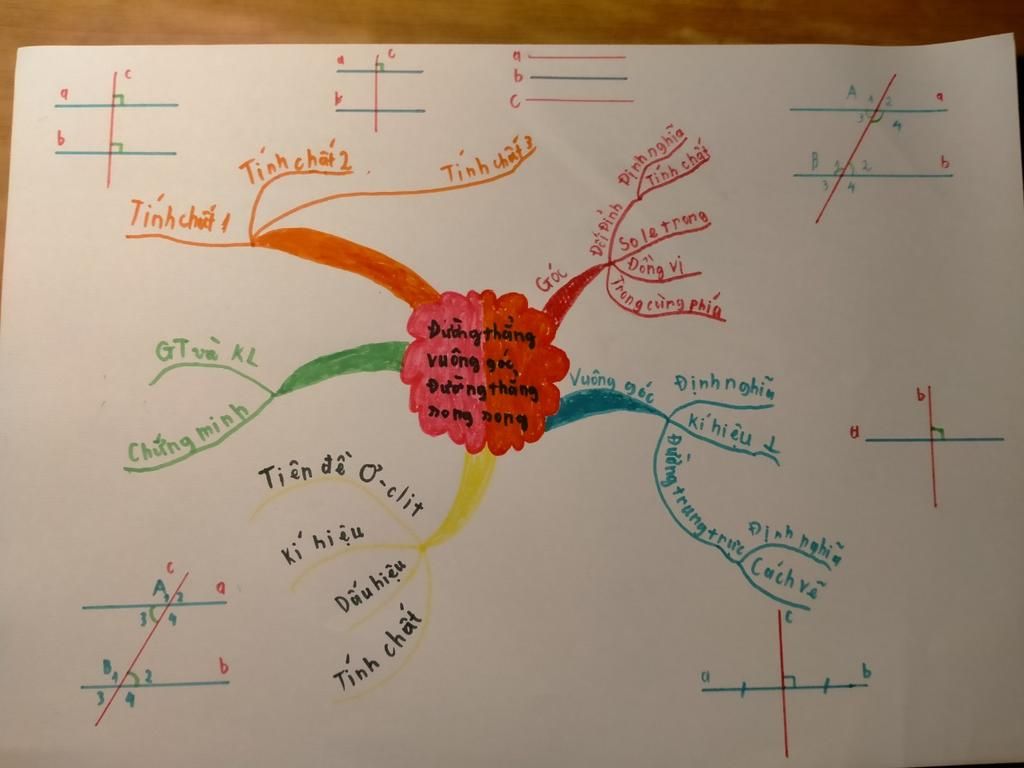 Đường thẳng
vuông góc,
Đường thẳng
song song
Tính chất 1
Tính chất 2
Tính chất 3
Góc
Đối đỉnh
Định nghĩa
Tính chất
So le trong
Đồng vị
Trong cùng phía
Vuông góc
Định nghĩa
Kí hiệu ⊥
Đường trung trực
Định nghĩa
Cách vẽ
GT và KL
Chứng minh
Tiên đề Ơ-clit
Kí hiệu
Dấu hiệu
Tính chất
c
a
b
c
a
b
a
b
c
A 1 2 a
3 4
B 1 2 b
3 4
b
a
c
a b
c
A 1 2 a
3 4
B 1 2 b
3 4